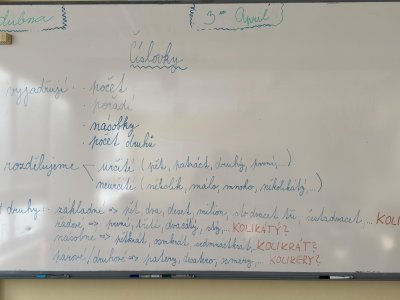 dubna 3rd April
Číslovky
vyjadřují · počet
· pořadí
· násobky
· počet druhů
rozdělujeme určité (pět, patnáct, druhý, první,...)
neurčité (několik, málo, mnoho, několikátý,...)
druhy: · základní => pět, dva, deset, milion, sto dvacet tři, šestadvacet,... KOLI
řadové => první, třetí, dvacátý, stý,... KOLIKÁTÝ?
násobné => pětkrát, osmkrát, sedmnáctkrát,... KOLIKRÁT?
druhové => patery, desatero, sedmery,... KOLIKERÝ?